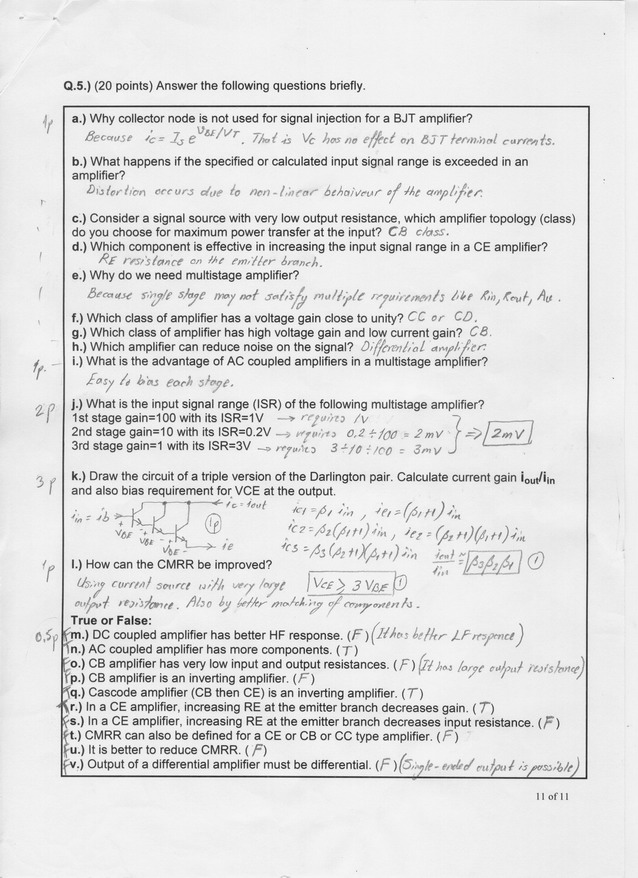 Q.5.) (20 points) Answer the following questions briefly.
1p
a.) Why collector node is not used for signal injection for a BJT amplifier?
Because ic = Is e^VBE/VT. That is Vc has no effect on BJT terminal currents.
b.) What happens if the specified or calculated input signal range is exceeded in an
amplifier?
Distortion occurs due to non-linear behaiveur of the amplifier.
c.) Consider a signal source with very low output resistance, which amplifier topology (class)
do you choose for maximum power transfer at the input? CB class.
d.) Which component is effective in increasing the input signal range in a CE amplifier?
RE resistance on the emitter branch.
e.) Why do we need multistage amplifier?
Because single stage may not satisfy multiple requirements like Rin, Rout, Av.
f.) Which class of amplifier has a voltage gain close to unity? CC or CD.
g.) Which class of amplifier has high voltage gain and low current gain? CB.
h.) Which amplifier can reduce noise on the signal? Differential amplifier.
1p.
i.) What is the advantage of AC coupled amplifiers in a multistage amplifier?
Easy to bias each stage.
2p
j.) What is the input signal range (ISR) of the following multistage amplifier?
1st stage gain=100 with its ISR=1V → requires 1V
2nd stage gain=10 with its ISR=0.2V → requires 0,2÷100 = 2mV ⇒ 2mV
3rd stage gain=1 with its ISR=3V → requires 3÷10÷100 = 3mV
3p
k.) Draw the circuit of a triple version of the Darlington pair. Calculate current gain iout/iin
and also bias requirement for VCE at the output.
iin = ib
ic = iout
VBE
VBE
VBE
ie
1p
ic1 = β1 iin, ie1 = (β1+1) iin
ic2 = β2(β1+1) iin, ie2 = (β2+1)(β1+1) iin
ic3 = β3(β2+1)(β1+1) iin iout/iin ≈ β3β2β1 1
1p
l.) How can the CMRR be improved?
Using current source with very large VCE ≥ 3VBE 1
output resistance. Also by better matching of components.
True or False:
0,5p
m.) DC coupled amplifier has better HF response. (F) (It has better LF responce)
n.) AC coupled amplifier has more components. (T)
o.) CB amplifier has very low input and output resistances. (F) (It has large output resistance)
p.) CB amplifier is an inverting amplifier. (F)
q.) Cascode amplifier (CB then CE) is an inverting amplifier. (T)
r.) In a CE amplifier, increasing RE at the emitter branch decreases gain. (T)
s.) In a CE amplifier, increasing RE at the emitter branch decreases input resistance. (F)
t.) CMRR can also be defined for a CE or CB or CC type amplifier. (F)
u.) It is better to reduce CMRR. (F)
v.) Output of a differential amplifier must be differential. (F) (Single-ended output is possible)
11 of 11